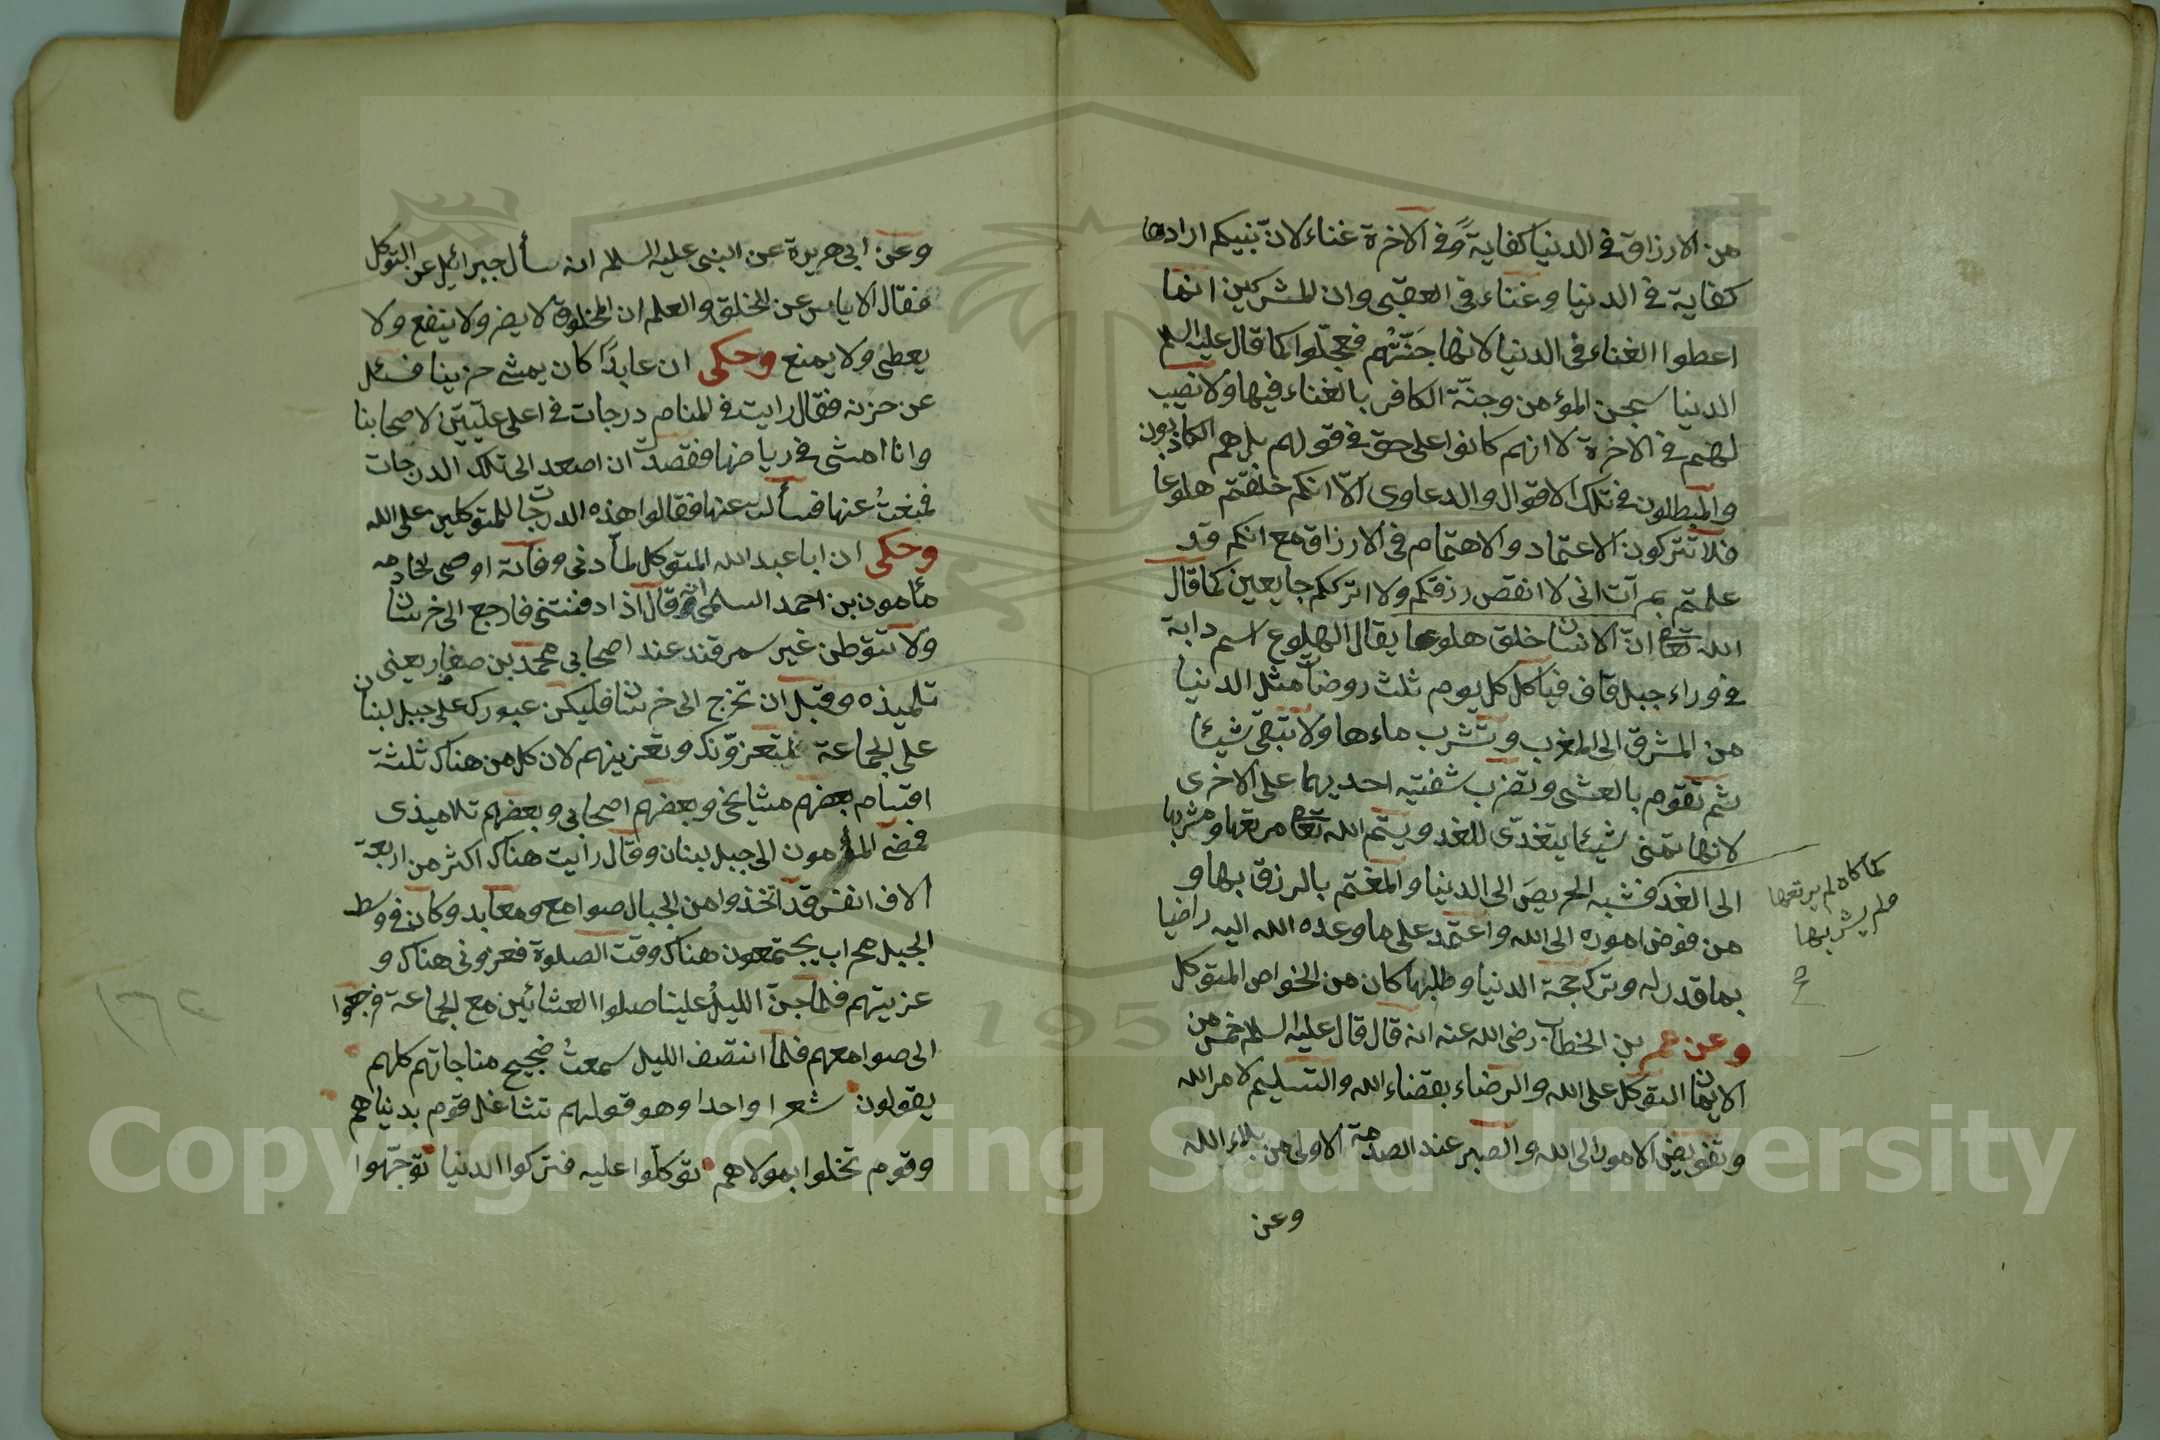 من الارزاق في الدنيا كفاية وفي الاخرة غناء لان نبيكم اراد
كفاية في الدنيا وغناء في العقبى وان المشركين انما
اعطوا الغناء في الدنيا لانها جنتهم فعجلوا كما قال عليه السلم
الدنيا سجن المؤمن وجنة الكافر بالغناء فيها ولا نصيب
لهم في الاخرة لا انهم كانوا على حق في قولهم بل هم الكاذبون
والمبطلون في تلك الاقوال والدعاوى الا انكم خلقتم هلوعا
فلا تتركون الاعتماد والاهتمام في الارزاق مع انكم قد
علمتم انى لا انقص رزقكم ولا اترككم جايعين كما قال
الله تعا ان الانسان خلق هلوعا يقال الهلوع اسم دابة
في وراء جبل قاف فيأكل كل يوم ثلث روضات مثل الدنيا
من المشرق الى المغرب وتشرب ماءها ولا تبقى شيئا
ثم تقوم بالعشى وتضرب شفتيه احديهما على الاخرى
لانها تمنى شيئا يتغدى للغد ويتم الله تعا مرتعها ومشربها
كما كان لم يرتعها
ولم يشربها
الى الغد فشبه الحريص الى الدنيا والمغتم بالرزق بها و
من فوض اموره الى الله واعتمد على ما وعده الله اليه راضيا
بما قدر له وترك حجة الدنيا وطلبها كان من الخواص المتوكل
وعن عمر بن الخطاب رضى الله عنه انه قال قال عليه السلم خمس من
الايمان التوكل على الله والرضاء بقضاء الله والتسليم لامر الله
وتفويض الامور الى الله والصبر عند الصدمة الاولى من بلاء الله
وعن
وعن ابي هريرة عن النبى عليه السلم انه سأل جبرائيل عن التوكل
فقال الاياس عن الخلق والعلم ان المخلوق لا يضر ولا ينفع ولا
يعطى ولا يمنع وحكى ان عابدا كان يمشى حزينا فسئل
عن حزنه فقال رايت في المنام درجات في اعلى عليين لاصحابنا
وانا امشى في رياضها فقصدت ان اصعد الى تلك الدرجات
فمنعت عنها فسألت عنها فقالوا هذه الدرجات للمتوكلين على الله
وحكى ان ابا عبد الله المتوكل لما دنى وفاته اوصى لخادمه
مأمون بن احمد السلمى انه قال اذا دفنتنى فارجع الى خرسان
ولا تتوطن غير سمرقند عند اصحابي محمد بن صفار يعنى
تلميذه وقبل ان تخرج الى خرسان فليكن عبورك على جبل لبنان
على الجماعة ليتعزونك وتعزينهم لان كل من هناك ثلثة
اقسام بعضهم مشايخى وبعضهم اصحابي وبعضهم تلاميذى
فمضى المأمون الى جبل لبنان وقال رأيت هناك اكثر من اربعة
الاف انفس قد اتخذوا من الجبال صوامع ومعابد وكان في وسط
الجبل محراب يجتمعون هناك وقت الصلوة فعزونى هناك و
عزيتهم فلما جن الليل علينا صلوا العشائين مع الجماعة فرجعوا
الى صوامعهم فلما انتصف الليل سمعت ضجيج مناجاتهم كلهم
يقولون شعرا واحدا وهو قولهم تشاغل قوم بدنياهم
وقوم تخلوا بمولاهم توكلوا عليه فتركوا الدنيا توجهوا
١٦٢
Copyright © King Saud University
1957